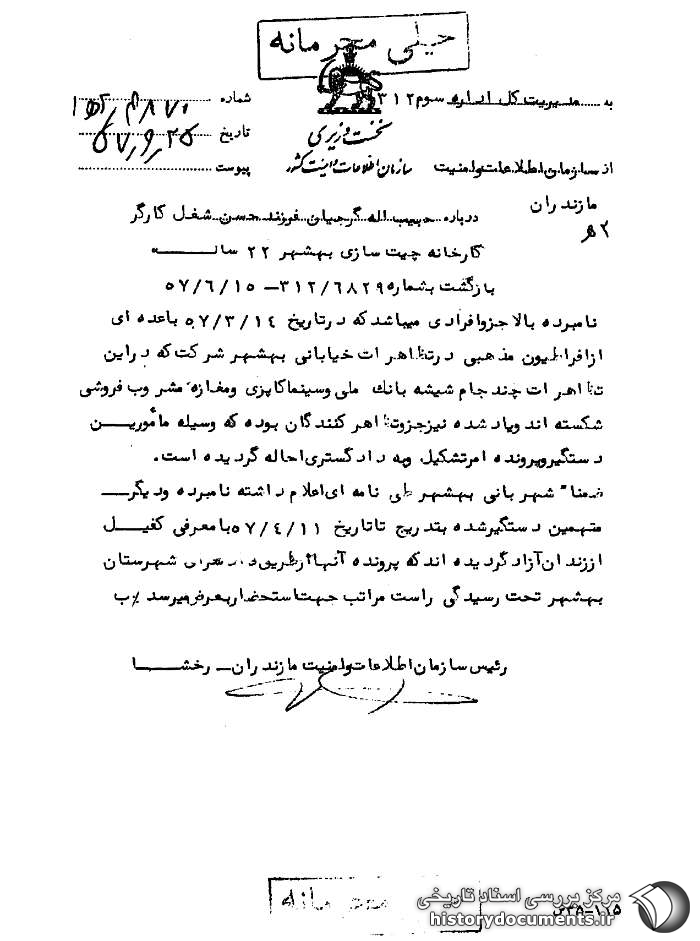 خیلی محرمانه
به مدیریت کل اداره سوم ۳۱۲
شماره
نخست وزیری
تاریخ
از سازمان اطلاعات و امنیت
سازمان اطلاعات و امنیت کشور
پیوست
مازندران
۲ هـ
درباره حبیب اله گرجیان فرزند حسن شغل کارگر
کارخانه چیت سازی بهشهر ۲۲ ساله
بازگشت بشماره ۳۱۲/۶۸۲۹ – ۵۷/۶/۱۵
نامبرده بالا جزو افرادی میباشد که در تاریخ ۵۷/۳/۱۴ با عده ای
از افراطیون مذهبی در تظاهرات خیابانی بهشهر شرکت که در این
تظاهرات چند جام شیشه بانک ملی و سینما کاپری و مغازه مشروب فروشی
شکسته اند و یاد شده نیز جزو تظاهر کنندگان بوده که وسیله مأمورین
دستگیر و پرونده امر تشکیل و به دادگستری احاله گردیده است.
ضمنا" شهربانی بهشهر طی نامه ای اعلام داشته نامبرده و دیگر
متهمین دستگیر شده بتدریج تا تاریخ ۵۷/۴/۱۱ با معرفی کفیل
از زندان آزاد گردیده اند که پرونده آنها از طریق دادسرای شهرستان
بهشهر تحت رسیدگی است مراتب جهت استحضار بعرض میرسد ٪ب
رئیس سازمان اطلاعات و امنیت مازندران – رخشا
محرمانه
مرکز بررسی اسناد تاریخی
historydocuments.ir